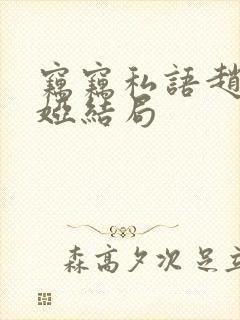 竊竊私語趙
婭結局
森高夕次 足立